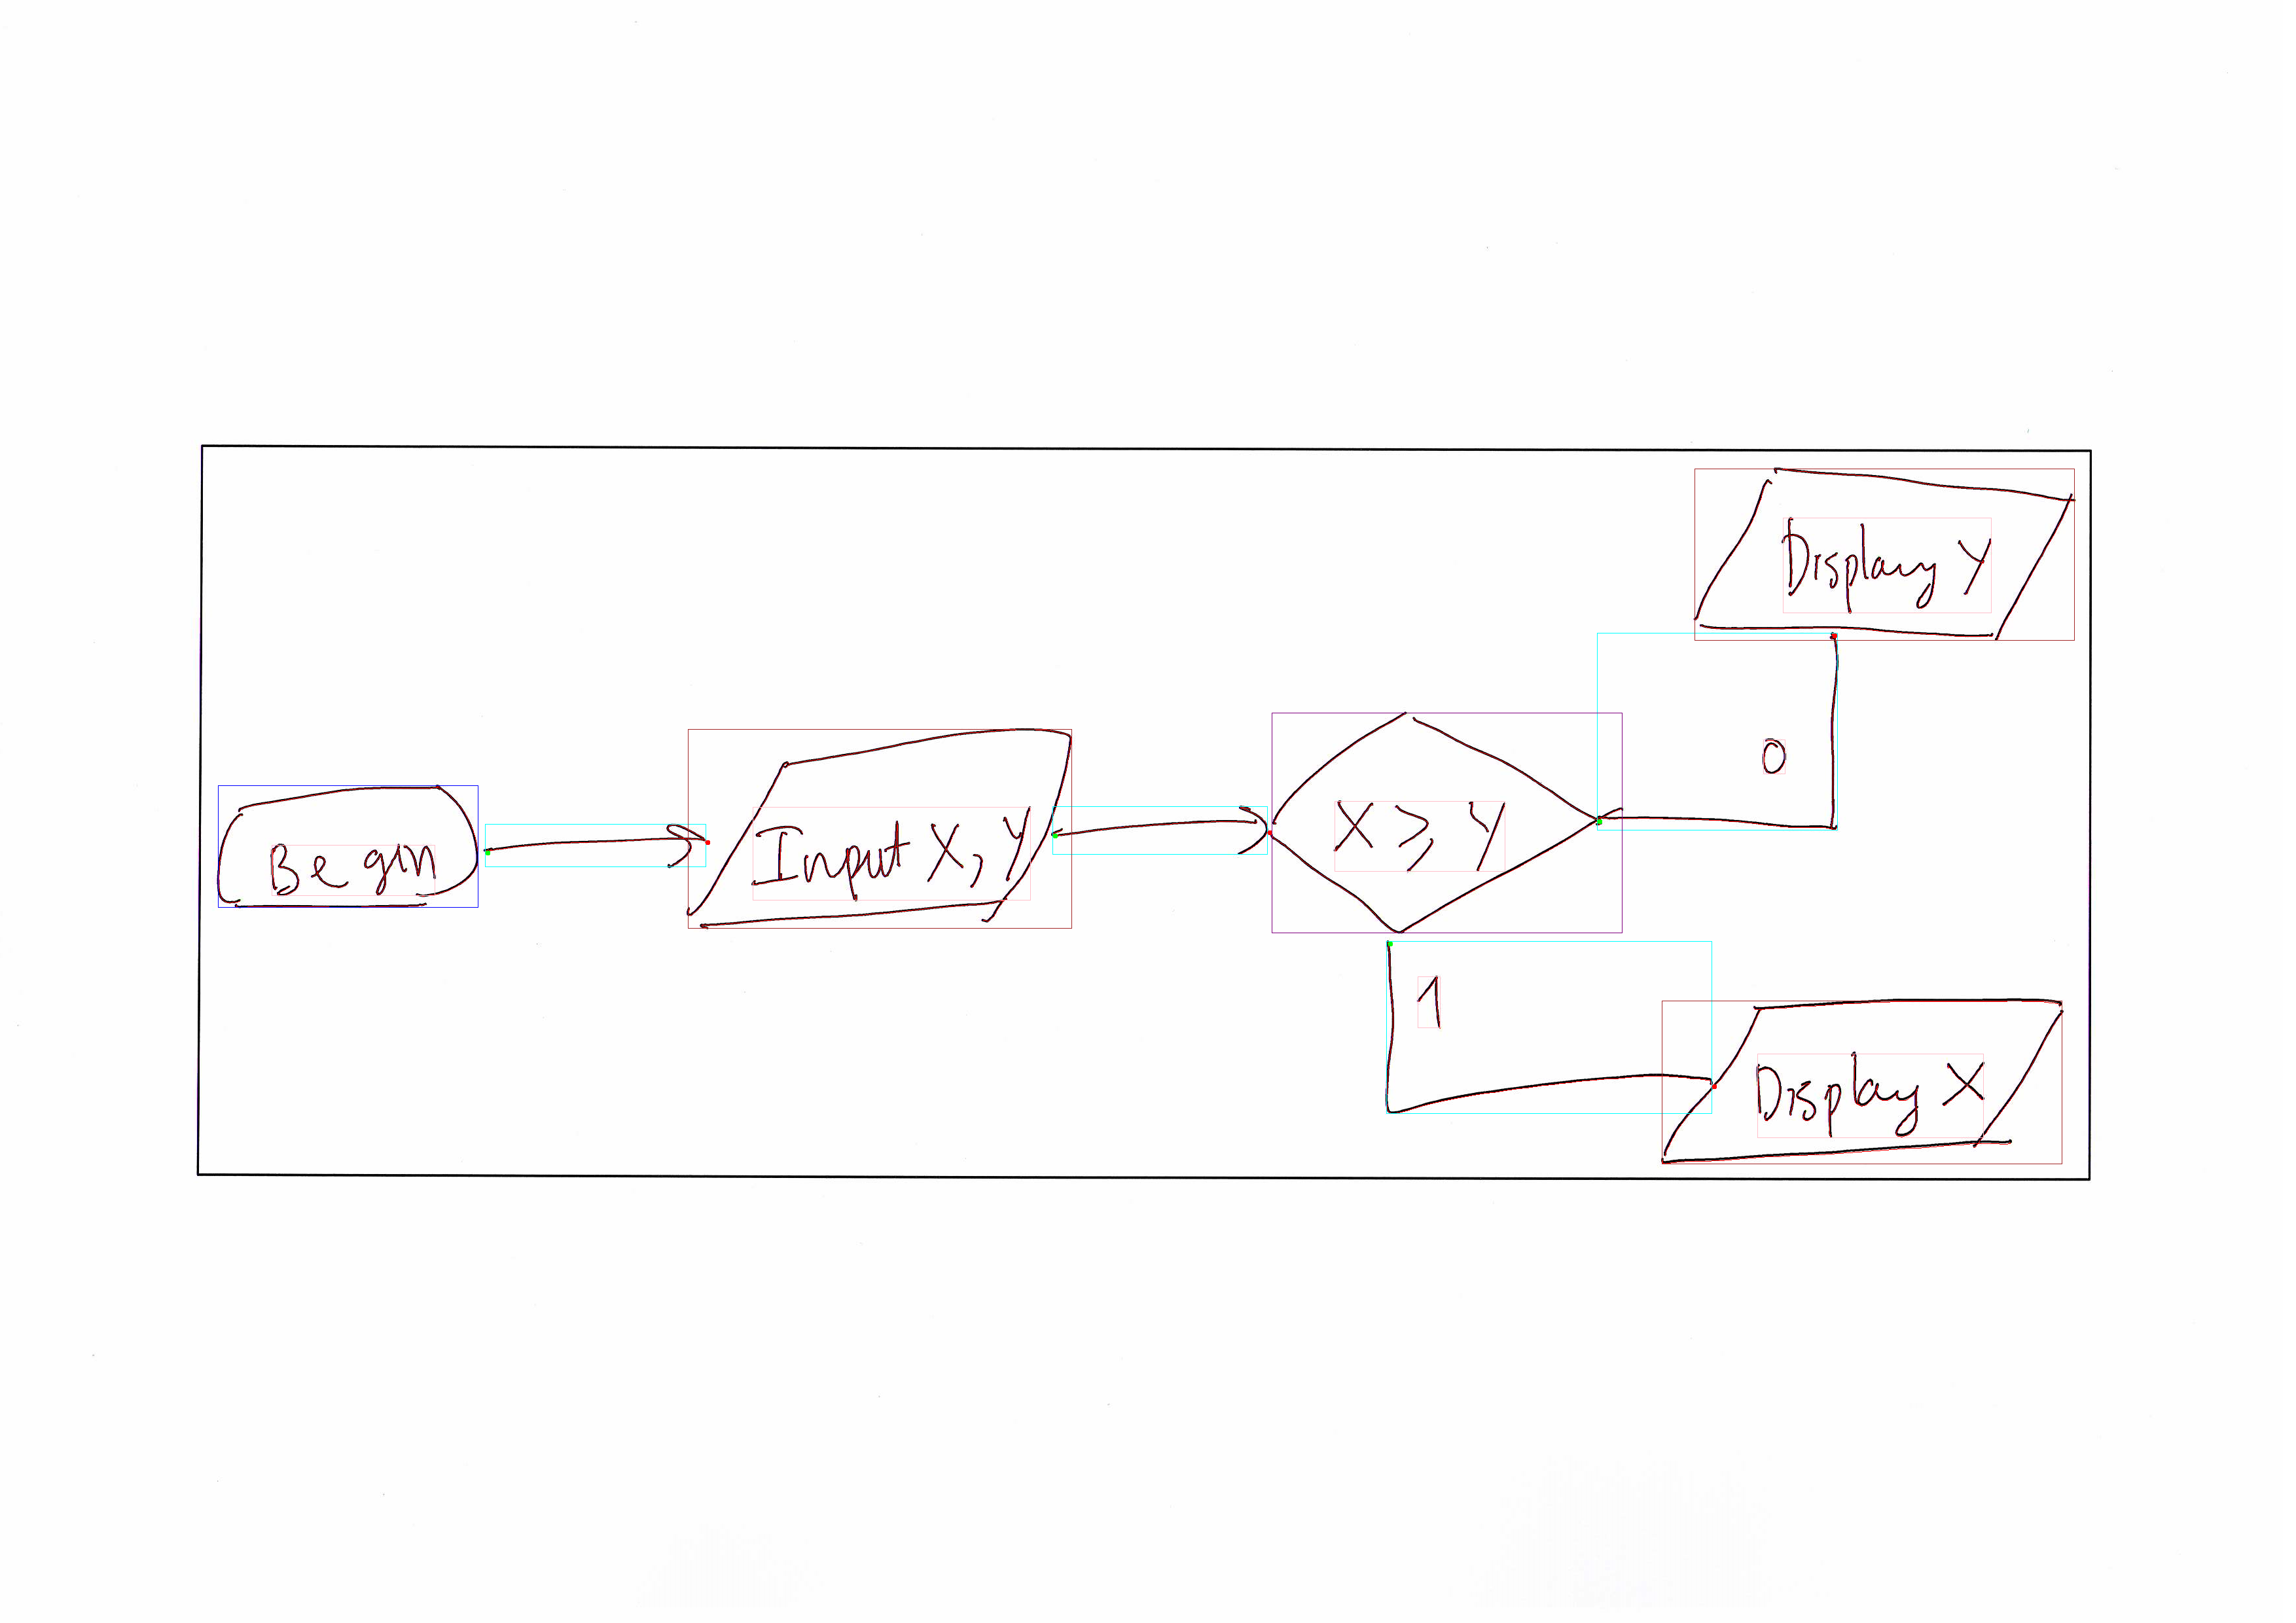 Begin
Input X, Y
X ≥ Y
0
Display Y
1
Display X